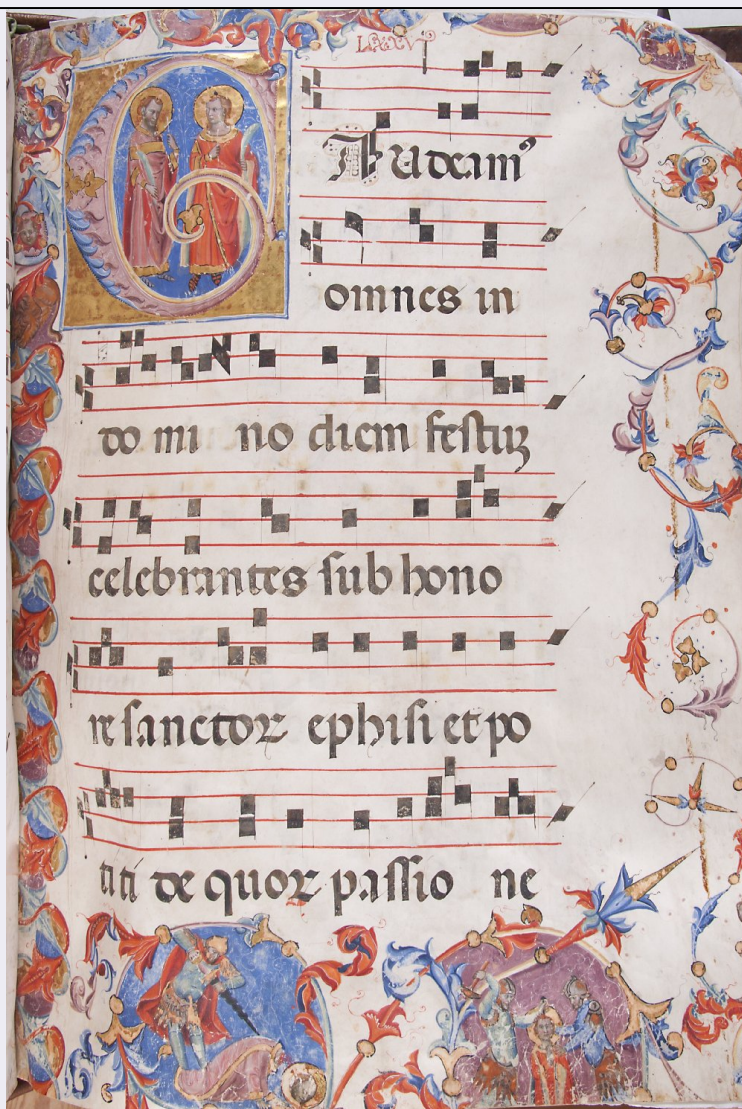 LXXVI
Gaudeamꝰ
omnes in
do mi no diem festiuꝫ
celebrantes sub hono
re sanctoꝝ ephisi et po
titi de quoꝝ passio ne